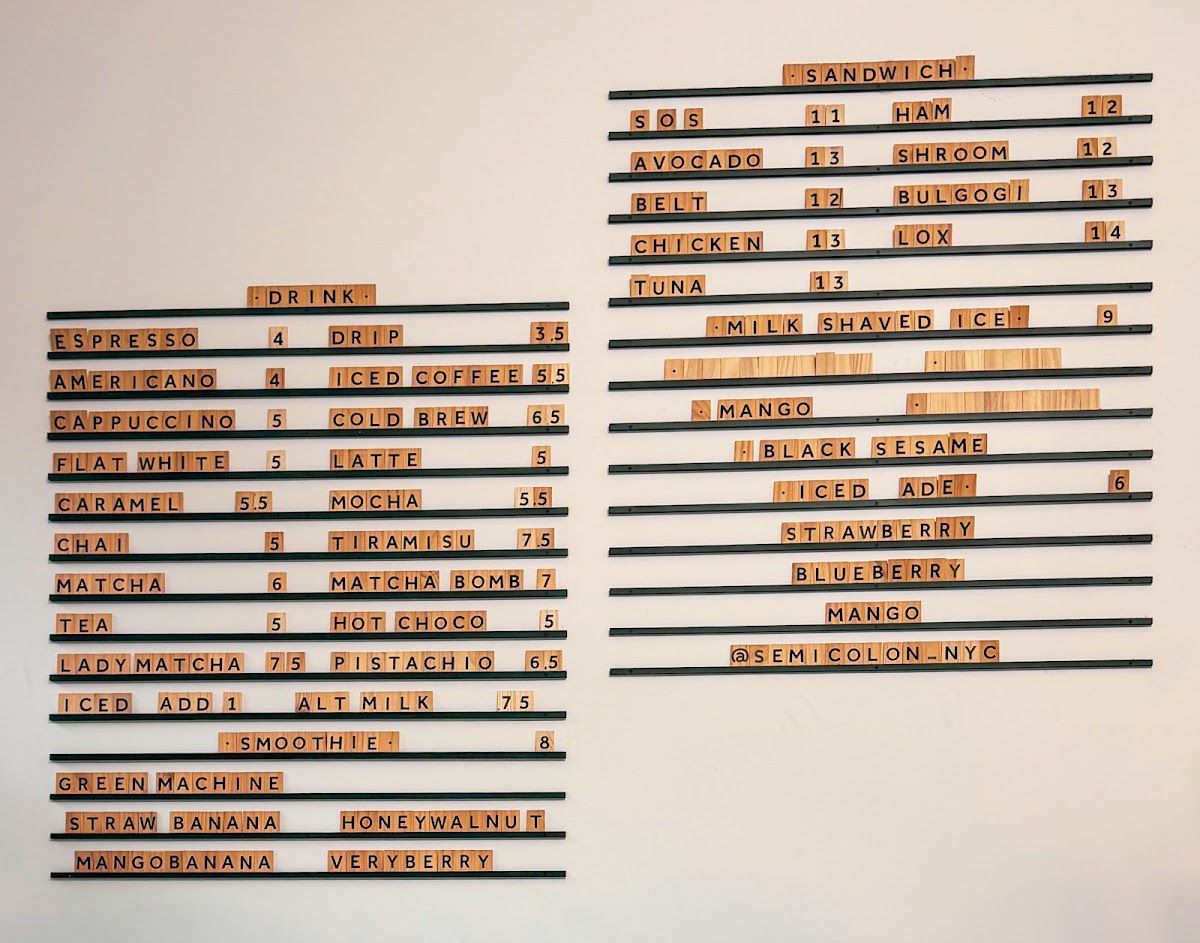 · DRINK ·
ESPRESSO 4 DRIP 3.5
AMERICANO 4 ICED COFFEE 5.5
CAPPUCCINO 5 COLD BREW 6.5
FLAT WHITE 5 LATTE 5
CARAMEL 5.5 MOCHA 5.5
CHAI 5 TIRAMISU 7.5
MATCHA 6 MATCHA BOMB 7
TEA 5 HOT CHOCO 5
LADY MATCHA 7 5 PISTACHIO 6.5
ICED ADD 1 ALT MILK .75
· SMOOTHIE · 8
GREEN MACHINE
STRAW BANANA HONEYWALNUT
MANGOBANANA VERYBERRY
· SANDWICH ·
SOS 11 HAM 12
AVOCADO 13 SHROOM 12
BELT 12 BULGOGI 13
CHICKEN 13 LOX 14
TUNA 13
· MILK SHAVED ICE · 9
· MANGO ·
· BLACK SESAME
· ICED ADE · 6
STRAWBERRY
BLUEBERRY
MANGO
@SEMICOLON_NYC